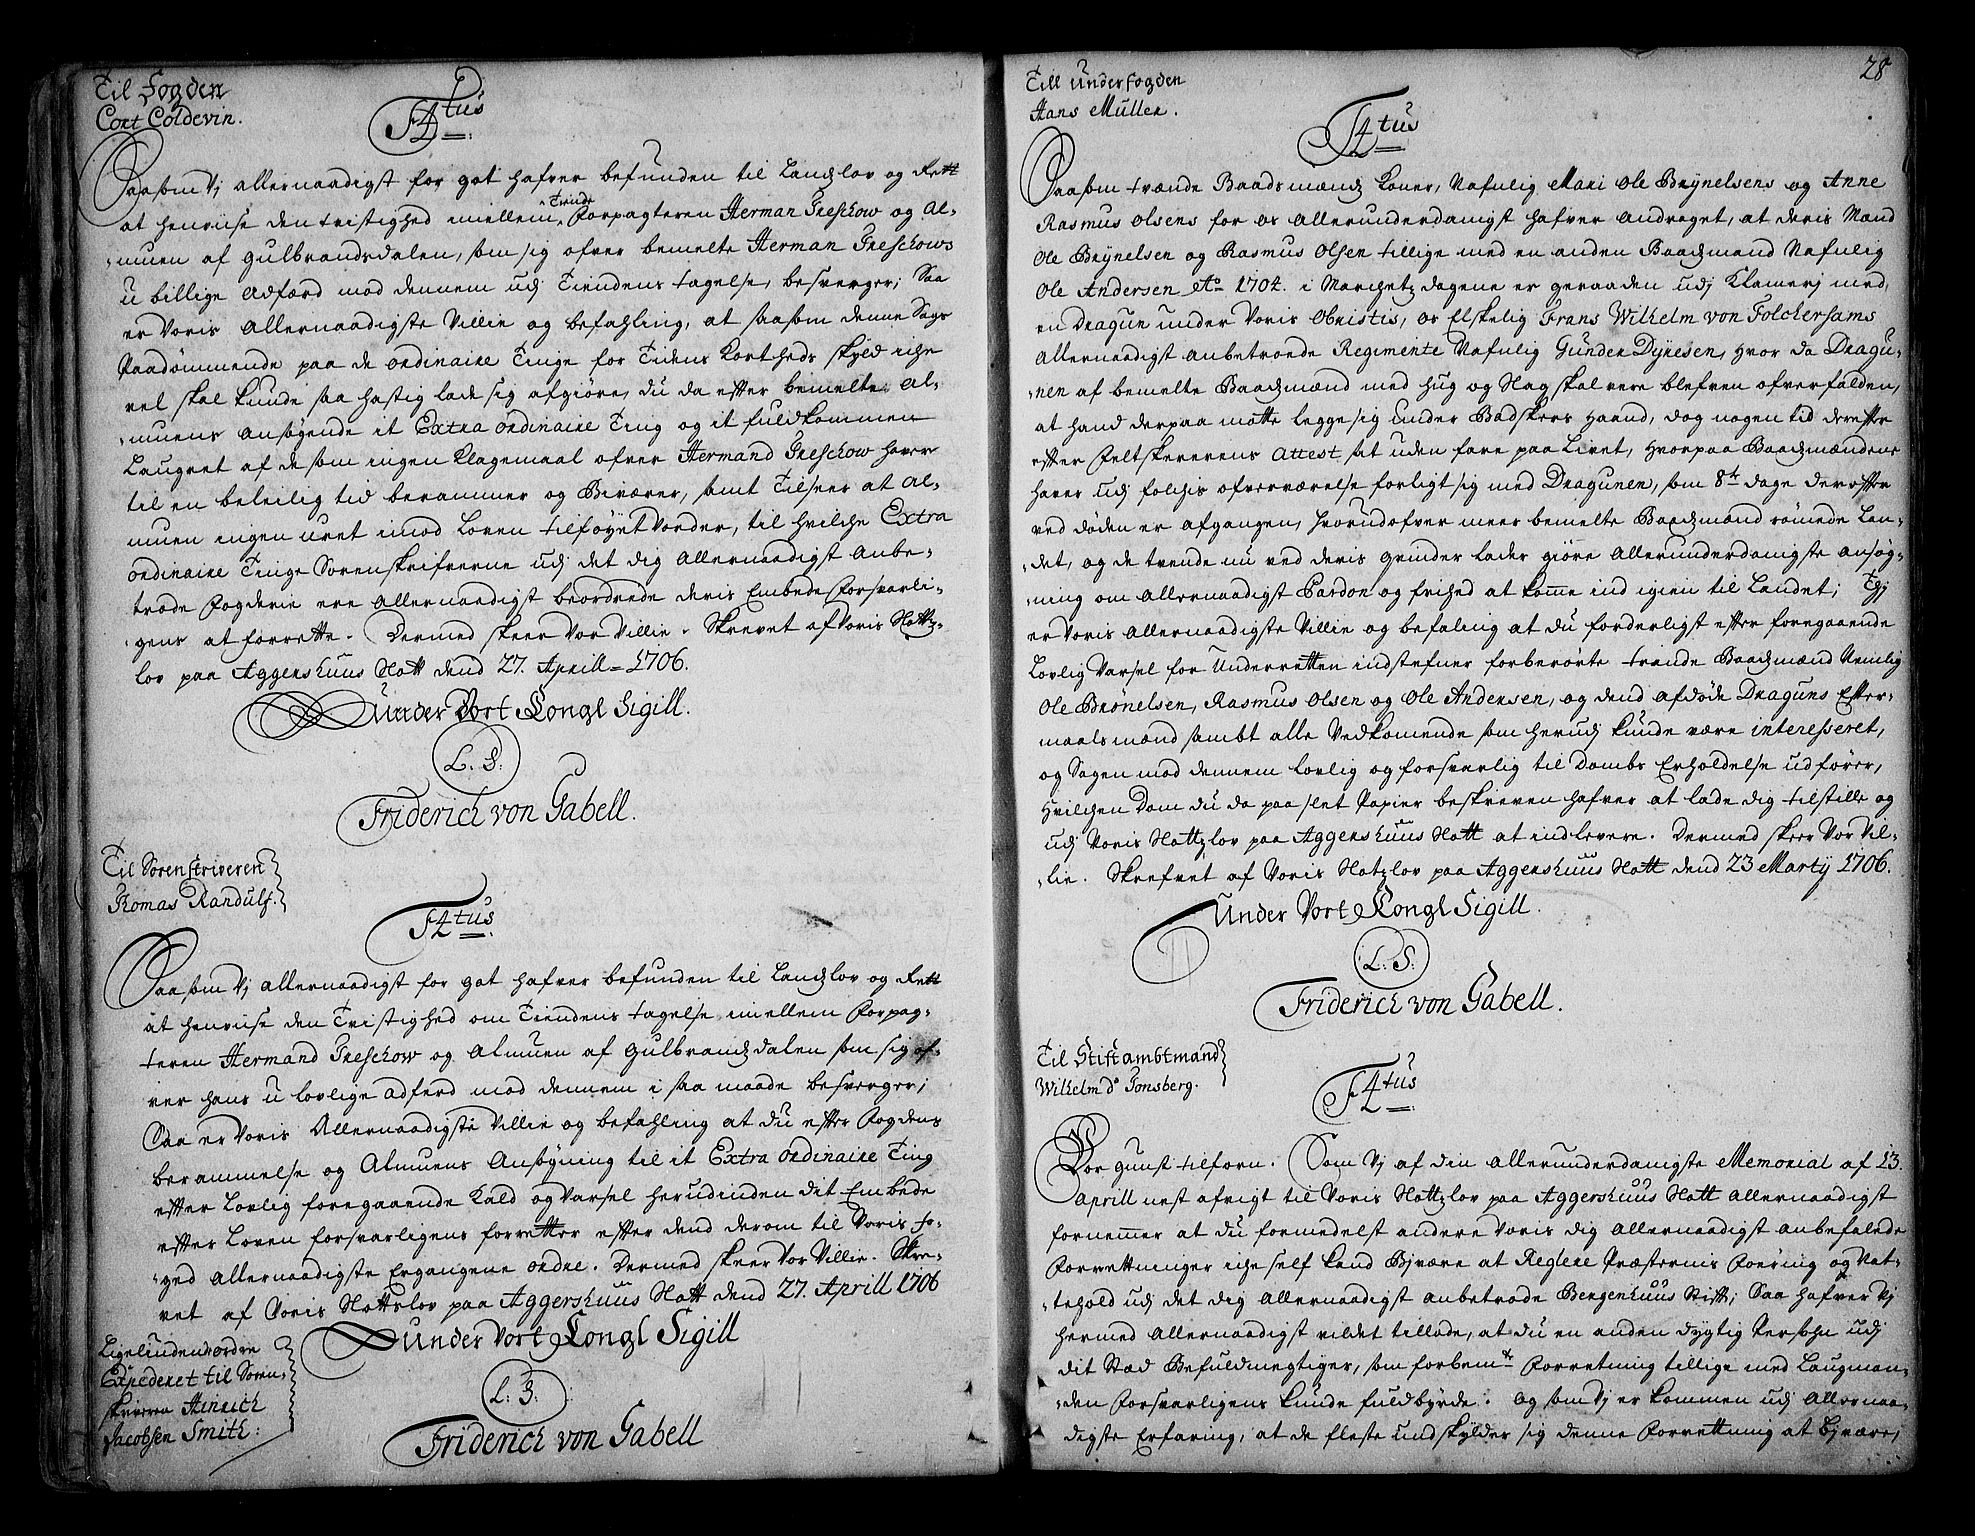 Til Fogden
Cort Coldevin.
F4tus
Saasom Vj allernaadigst for got hafver befunden til Landslov og Rett
at henviise den tristighed imellem Tiende Forpagteren Herman Treschow og Al-
muen af Gulbrandsdalen, som sig ofver bemelte Herman Treschows
ubillige Adfærd mod dennem udj Tiendens tagelse, besverger; Saa
er Voris Allernaadigste Villie og befahling, at saasom denne Sags
Paadömmende paa de ordinaire Tinge for Tidens Kortheds skyld iche
vel skal kunde saa hastig lade sig afgiöre, du da efter bemelte Al-
muens ansögende it Extra ordinaire Ting og it fuldkommen
Laugret af de som ingen Klagemaal ofver Hermand Treschow haver
til en beleilig tid berammer og Bivæner, samt Tilseer at Al-
muen ingen uret imod Loven tilföyet Vorder, til hvilche Extra
ordinaire Tinge Sorenskrifverne udj det dig Allernaadigst Anbe-
trode Fogderie ere Allernaadigst beordrede deris Embede Forsvarli-
gens at forrette. Dermed skeer Vor Villie. Skrevet af Voris Slotts-
lov paa Aggershuus Slott dend 27. Aprill 1706.
Under Vort Kongl Sigill.
L. S:
Friderich von Gabell.
Til Sorenskriveren
Thomas Randulf.
F4tus
Saasom Vj allernaadigst for got hafver befunden til Landslov og Rett
at henviise den Tristighed om Tiendens tagelse imellem Forpag-
teren Hermand Treschow og Almuen af Gulbrandsdalen som sig of-
ver hans ulovlige adferd mod dennem i saa maade besverger;
Saa er Voris Allernaadigste Villie og befahling at du efter Fogdens
berammelse og Almuens Ansögning til it Extra ordinaire Ting
efter Lovlig foregaaende Kald og Varsel herudinden dit Embede
efter Loven forsvarligens forretter efter dend derom til Voris Fo-
ged Allernaadigste Ergangene ordre. Dermed skeer Vor Villie. Skre-
vet af Voris Slottslov paa Aggershuus Slott dend 27. Aprill 1706
Under Vort Kongl Sigill
L: S:
Friderich von Gabell
Ligelindende ordre
Expederet til Soren-
skriveren Hinrich
Jacobsen Smith:
28
Till underfogden
Hans Müller.
F4tus
Saasom tvænde Baadsmænds Koner, Nafnlig Mari Ole Brÿnelsens og Anne
Rasmus Olsens for os Allerunderdanigst hafver Andraget, at deris Mænd
Ole Brÿnelsen og Rasmus Olsen tillige med en anden Baadsmand Nafnlig
Ole Andersen Ao 1704. i Marchetz dagene er geraaden udj Klamerj med,
en Dragun under Voris Obristis, os Elskelig Frans Wilhelm von Folchersams
Allernaadigst Anbetroede Regimente Nafnlig Gunder Dÿresen, hvor da Dragu-
nen af bemelte Baadsmænd med hug og Slag skal vere blefven ofverfalden,
at hand derpaa motte legge sig under Badskers Haand, dog nogen tid derefter
efter Feltskerernens Attest sat uden fare paa Livet, hvorpaa Baadsmændene
haver udj folchis ofverværelse forligt sig med Dragunen, som 8te dage derefter
ved döden er afgangen, hvorudofver meer bemelte Baadsmænd römede Lan-
det, og de tvende nu ved deris qvinder lader giöre Allerunderdanigste ansög-
ning om Allernaadigst Pardon og frihed at komme ind igien til Landet; Thj
er Voris Allernaadigste Villie og befaling at du forderligst efter foregaaende
Lovlig Varsel for Underretten indstefner forberörte trænde Baadsmænd Nemlig
Ole Brönelsen, Rasmus Olsen og Ole Andersen, og dend afdöde Draguns Efter-
maalsmand sambt alle Vedkomende som herudj kunde være interesseret,
og Sagen mod dennem lovlig og forsvarlig til Dombs Erholdelse udförer,
Hvilchen Dom du da paa slet Papier beskreven hafver at lade dig tilstille og
udj Voris Slottslov paa Aggershuus Slott at indlevere. Dermed skeer Vor Vil-
lie. Skrefvet af Voris Slotslov paa Aggershuus Slott dend 23 Martÿ 1706.
Under Vort Kongl Sigill.
L: S:
Friderich von Gabell.
Til Stiftambtmand
Wilhelm d' Tonsberg.
F4tus
Vor gunst tilforn. Som Vj af din Allerunderdanigste Memorial af 13.
aprill nest afvigt til Voris Slottslov paa Aggershuus Slott Allernaadigst
fornemmer at du formedelst andere Voris dig Allernaadigst anbefalede
Forrettninger iche self kand Bivære at Reglere Præsternis Foering og Nat-
tehold udj det dig Allernaadigst anbetrode Bergenhuus Stift; Saa hafver Vj
hermed Allernaadigst vildet tillade, at du en anden dygtig Persohn udj
dit Stæd Befuldmegtiger, som forbemte Forretning tillige med Laugman-
den Forsvarligens kunde fuldbÿrde. Og som Vj er kommen udj Allernaa-
digste Erfaring, at de fleste undskÿlder sig denne Forrettning at Bivære,